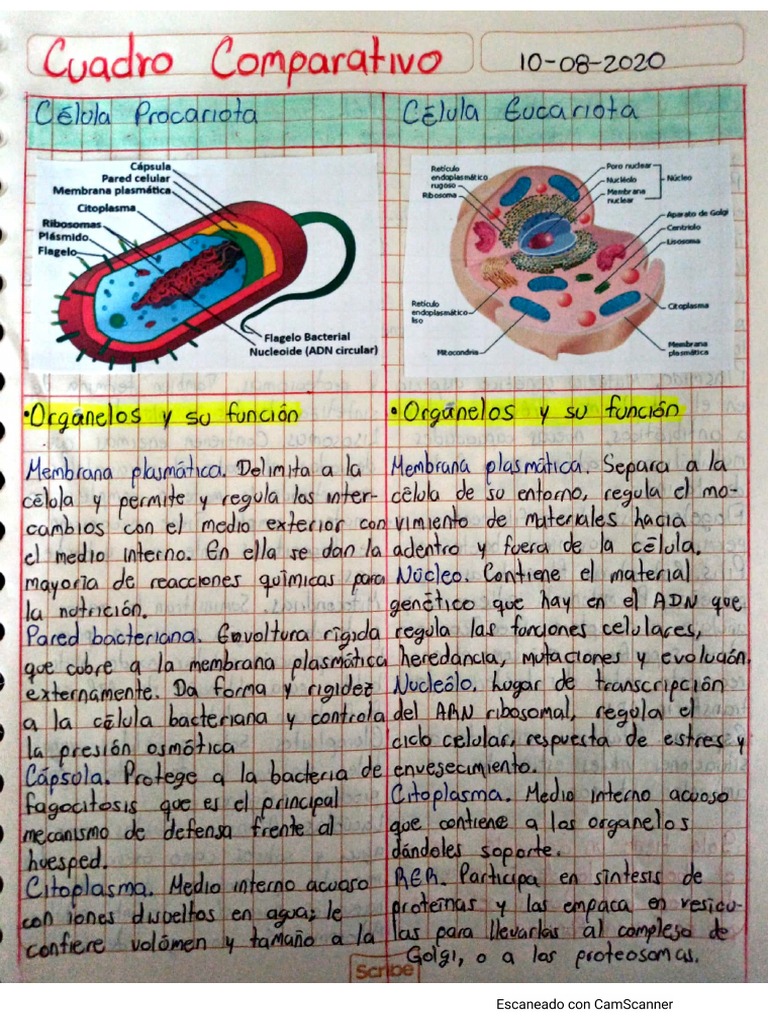 Cuadro Comparativo
10-08-2020
Célula Procariota
Cápsula
Pared celular
Membrana plasmática
Citoplasma
Ribosomas
Plásmido
Flagelo
Flagelo Bacterial
Nucleoide (ADN circular)
• Organelos y su función
Membrana plasmática. Delimita a la
célula y permite y regula los inter-
cambios con el medio exterior con
el medio interno. En ella se dan la
mayoría de reacciones químicas para
la nutrición.
Pared bacteriana. Envoltura rígida
que cubre a la membrana plasmática
externamente. Da forma y rigidez
a la célula bacteriana y controla
la presión osmótica
Cápsula. Protege a la bacteria de
fagocitosis que es el principal
mecanismo de defensa frente al
huesped.
Citoplasma. Medio interno acuoso
con iones disueltos en agua; le
confiere volúmen y tamaño a la
Célula Eucariota
Retículo
endoplasmático
rugoso
Ribosoma
Poro nuclear
Nucléolo
Membrana
nuclear
Núcleo
Aparato de Golgi
Centriolo
Lisosoma
Retículo
endoplasmático
liso
Citoplasma
Mitocondria
Membrana
plasmática
• Organelos y su función
Membrana plasmática. Separa a la
célula de su entorno, regula el mo-
vimiento de materiales hacia
adentro y fuera de la célula.
Núcleo. Contiene el material
genético que hay en el ADN que
regula las funciones celulares,
heredancia, mutaciones y evolución.
Nucleólo. Lugar de transcripción
del ARN ribosomal, regula el
ciclo celular, respuesta de estres y
envesecimiento.
Citoplasma. Medio interno acuoso
que contiene a los organelos
dándoles soporte.
RER. Participa en síntesis de
proteínas y las empaca en vesicu-
las para llevarlas al complejo de
Golgi, o a los proteosomas.
Scribe
Escaneado con CamScanner